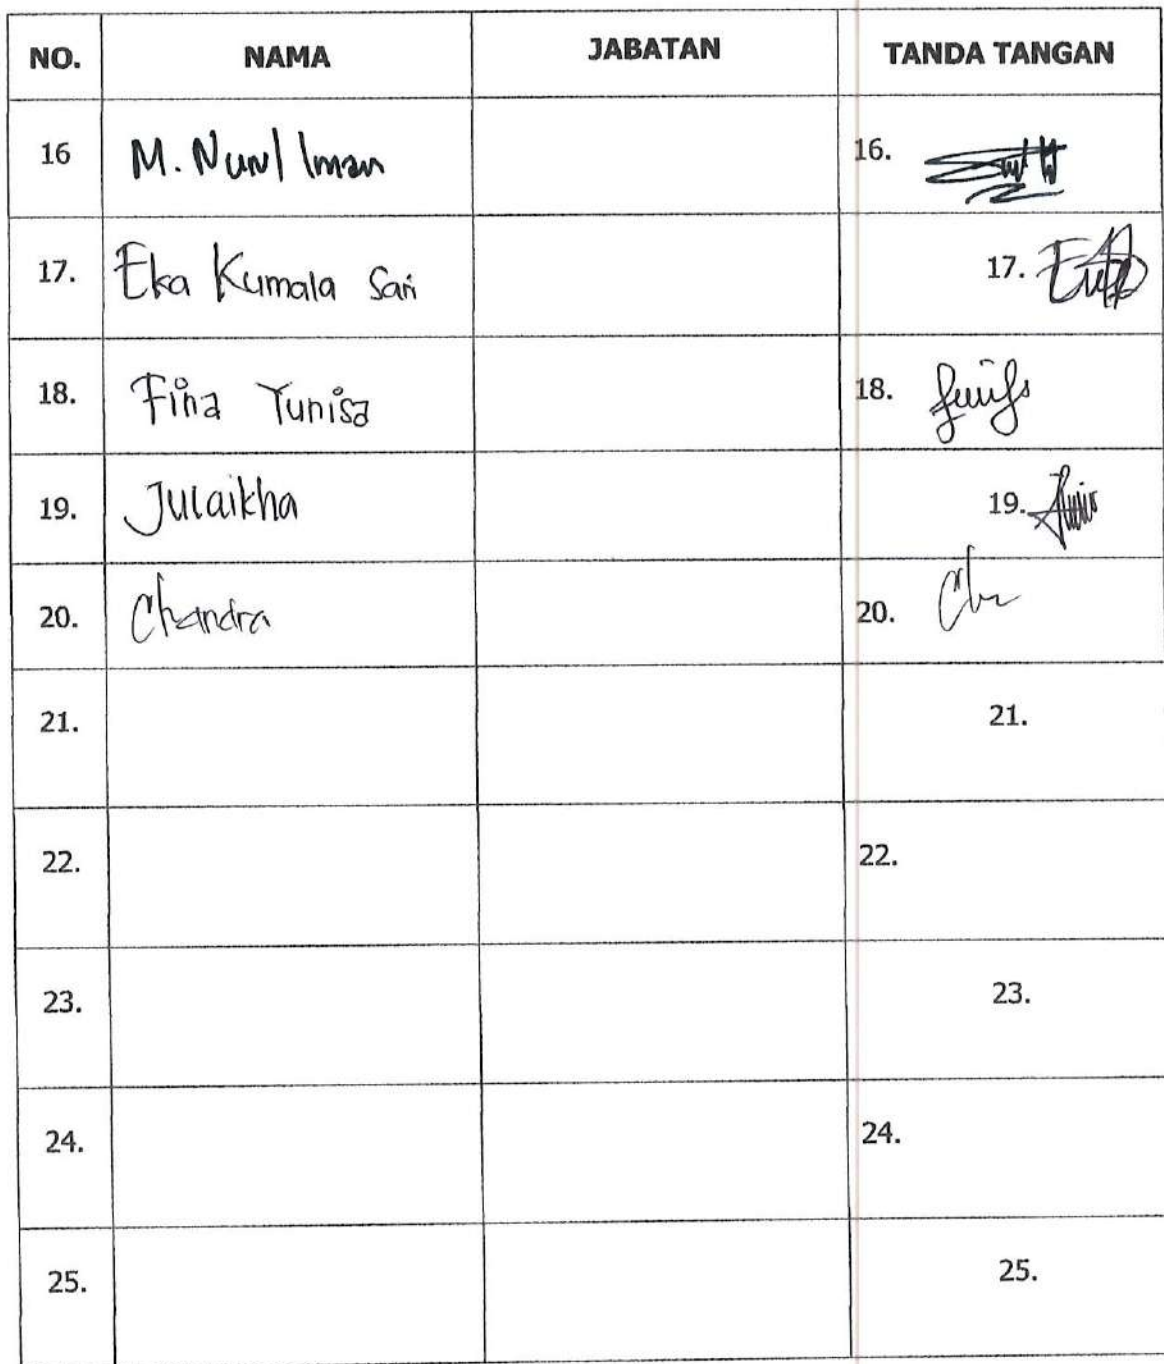 NO. NAMA JABATAN TANDA TANGAN
16 M. Nurul Iman 16.
17. Eka Kumala Sari 17.
18. Fina Yunisa 18.
19. Julaikha 19.
20. Chandra 20.
21. 21.
22. 22.
23. 23.
24. 24.
25. 25.